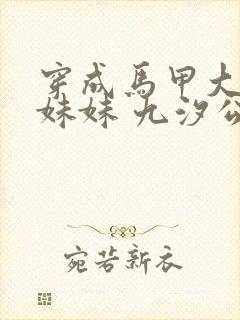 穿成馬甲大
妹妹 九汐公
宛若新衣